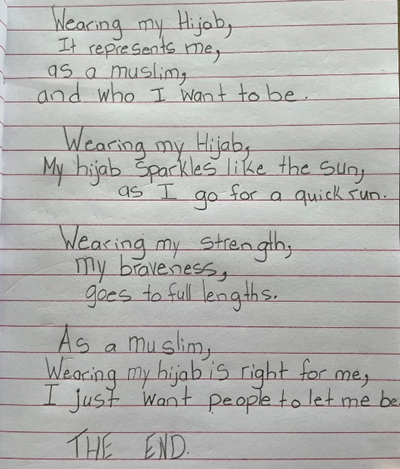 Wearing my Hijab,
It represents me,
as a muslim,
and who I want to be.
Wearing my Hijab,
My hijab sparkles like the sun,
as I go for a quick run.
Wearing my strength,
my braveness,
goes to full lengths.
As a muslim,
Wearing my hijab is right for me,
I just want people to let me be
THE END.